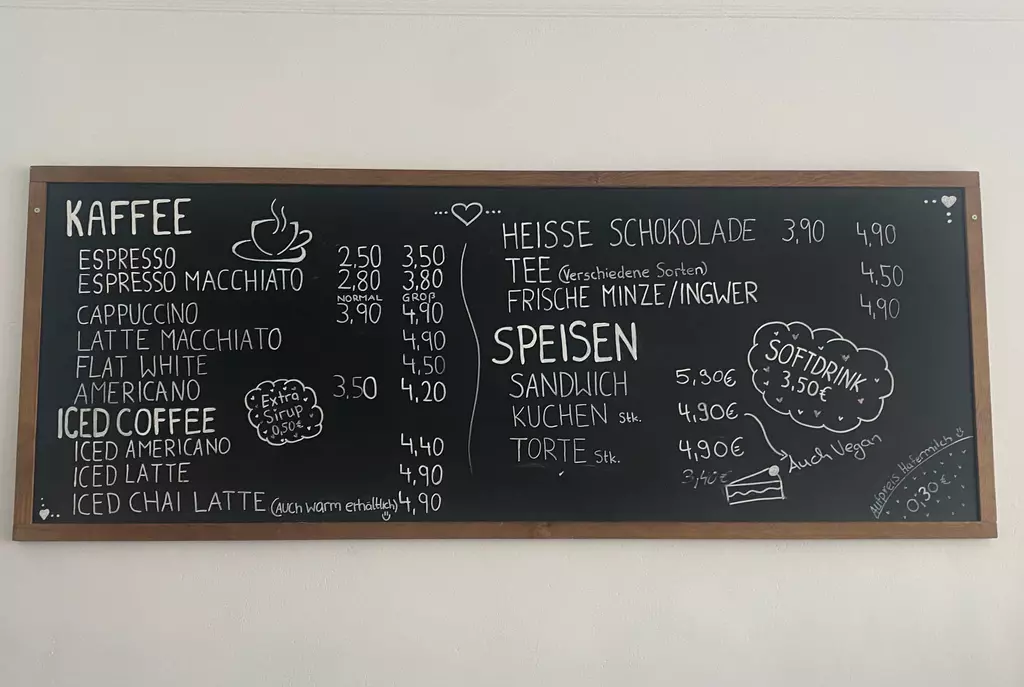 KAFFEE
ESPRESSO 2,50 3,50
ESPRESSO MACCHIATO 2,80 3,80
NORMAL GROß
CAPPUCCINO 3,90 4,90
LATTE MACCHIATO 4,90
FLAT WHITE 4,50
AMERICANO 3,50 4,20
Extra
Sirup
0,50€
ICED COFFEE
ICED AMERICANO 4,40
ICED LATTE 4,90
ICED CHAI LATTE (Auch warm erhältlich) 4,90
HEISSE SCHOKOLADE 3,90 4,90
TEE (Verschiedene Sorten) 4,50
FRISCHE MINZE/INGWER 4,90
SPEISEN
SANDWICH 5,90€
KUCHEN Stk. 4,90€
TORTE Stk. 4,90€
3,40€
Auch Vegan
SOFTDRINK
3,50€
Aufpreis Hafermilch
0,30€